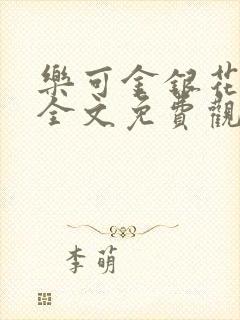 樂可金銀花
全文免費觀
李萌